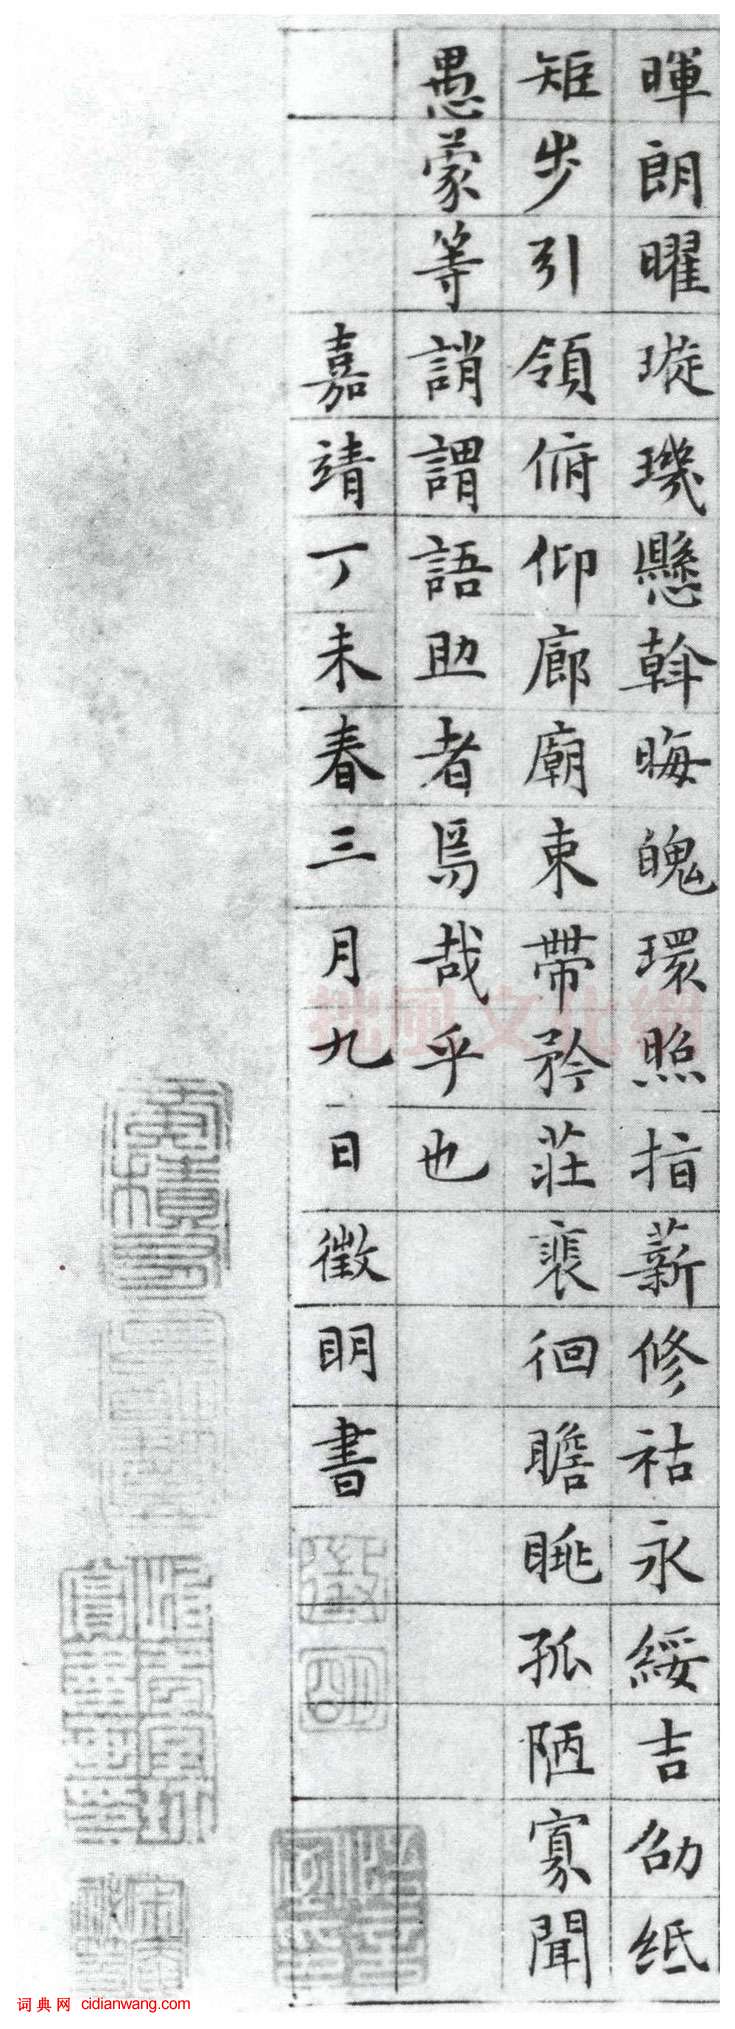 暉朗曜璇璣懸斡晦魄環照指薪修祜永綏吉劭紙
矩步引領俯仰廊廟束帶矜莊裵徊瞻眺孤陋寡聞
愚蒙等誚謂語助者焉哉乎也
嘉靖丁未春三月九日徵明書
徵
明
拙風文化網
词典网 cidianwang.com